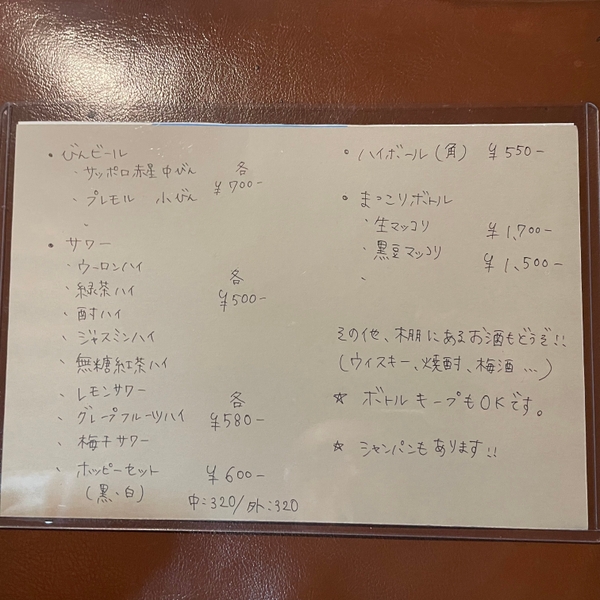 ・びんビール
・サッポロ赤星中びん 各
・プレモル 小びん ¥700-
・サワー
・ウーロンハイ
・緑茶ハイ 各
・酎ハイ ¥500-
・ジャスミンハイ
・無糖紅茶ハイ
・レモンサワー 各
・グレープフルーツハイ ¥580-
・梅干サワー
・ホッピーセット ¥600-
(黒・白) 中:320/外:320
・ハイボール(角) ¥550-
・まっこりボトル
・生マッコリ ¥1,700-
・黒豆マッコリ ¥1,500-
その他、棚にあるお酒もどうぞ!!
(ウィスキー、焼酎、梅酒...)
☆ ボトルキープもOKです。
☆ シャンパンもあります!!